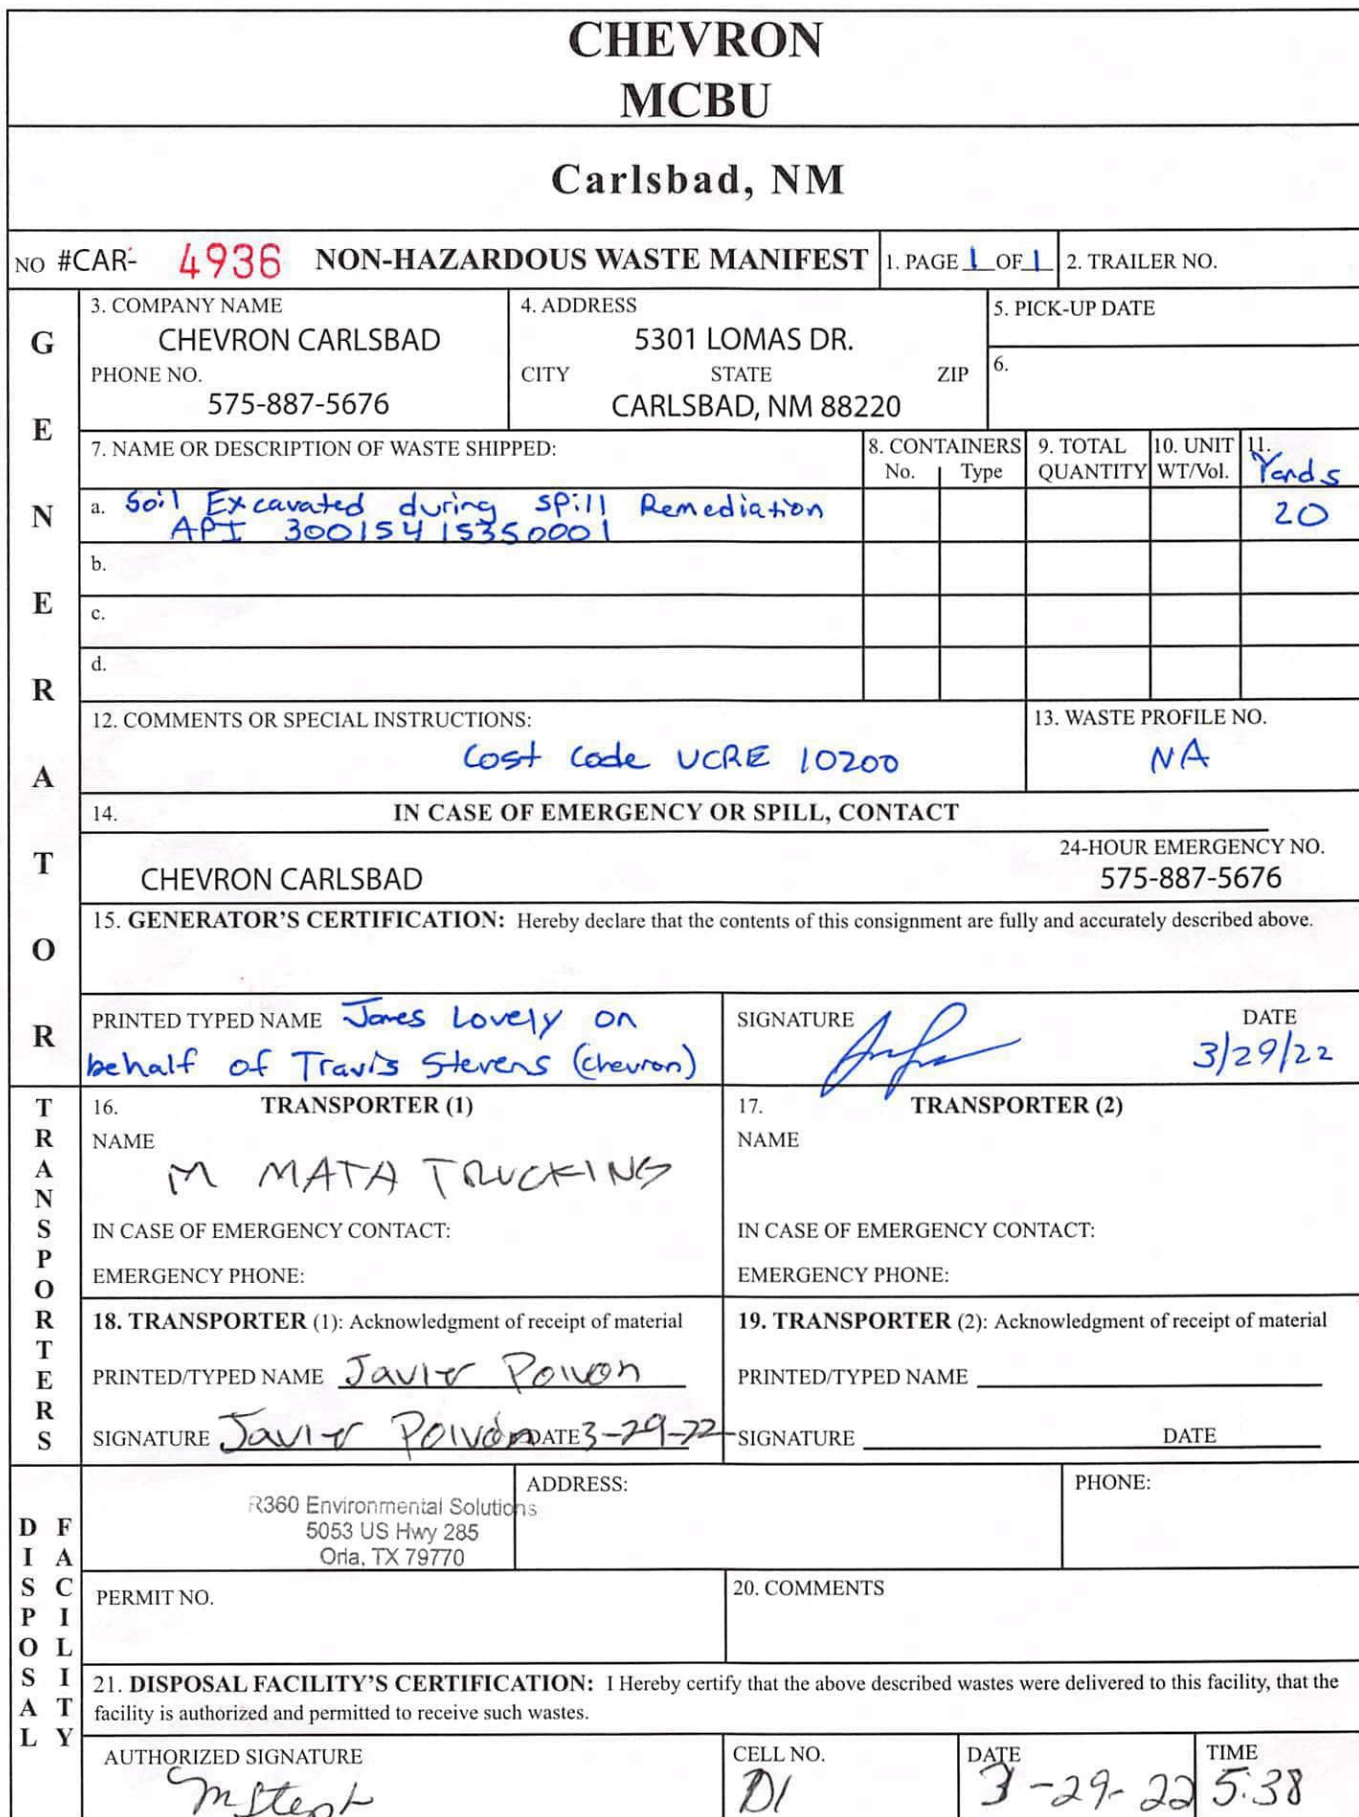 CHEVRON
MCBU
Carlsbad, NM
NO #CAR- 4936 NON-HAZARDOUS WASTE MANIFEST 1. PAGE 1 OF 1 2. TRAILER NO.
GENERATOR
3. COMPANY NAME
CHEVRON CARLSBAD
PHONE NO.
575-887-5676
4. ADDRESS
5301 LOMAS DR.
CITY STATE ZIP
CARLSBAD, NM 88220
5. PICK-UP DATE
6.
7. NAME OR DESCRIPTION OF WASTE SHIPPED:
8. CONTAINERS
No. Type
9. TOTAL
QUANTITY
10. UNIT
WT/Vol.
11.
Yards
a. Soil Excavated during spill Remediation
API 30015415350001
20
b.
c.
d.
12. COMMENTS OR SPECIAL INSTRUCTIONS:
Cost Code UCRE 10200
13. WASTE PROFILE NO.
NA
14. IN CASE OF EMERGENCY OR SPILL, CONTACT
24-HOUR EMERGENCY NO.
CHEVRON CARLSBAD 575-887-5676
15. GENERATOR'S CERTIFICATION: Hereby declare that the contents of this consignment are fully and accurately described above.
PRINTED TYPED NAME James Lovely on
behalf of Travis Stevens (Chevron)
SIGNATURE DATE
3/29/22
TRANSPORTERS
16. TRANSPORTER (1)
NAME
M MATA TRUCKING
IN CASE OF EMERGENCY CONTACT:
EMERGENCY PHONE:
17. TRANSPORTER (2)
NAME
IN CASE OF EMERGENCY CONTACT:
EMERGENCY PHONE:
18. TRANSPORTER (1): Acknowledgment of receipt of material
PRINTED/TYPED NAME Javier
SIGNATURE Javier DATE 3-29-22
19. TRANSPORTER (2): Acknowledgment of receipt of material
PRINTED/TYPED NAME
SIGNATURE DATE
DISPOSAL FACILITY
R360 Environmental Solutions
5053 US Hwy 285
Orla, TX 79770
ADDRESS:
PHONE:
PERMIT NO.
20. COMMENTS
21. DISPOSAL FACILITY'S CERTIFICATION: I Hereby certify that the above described wastes were delivered to this facility, that the
facility is authorized and permitted to receive such wastes.
AUTHORIZED SIGNATURE
CELL NO.
DATE
3-29-22
TIME
5:38